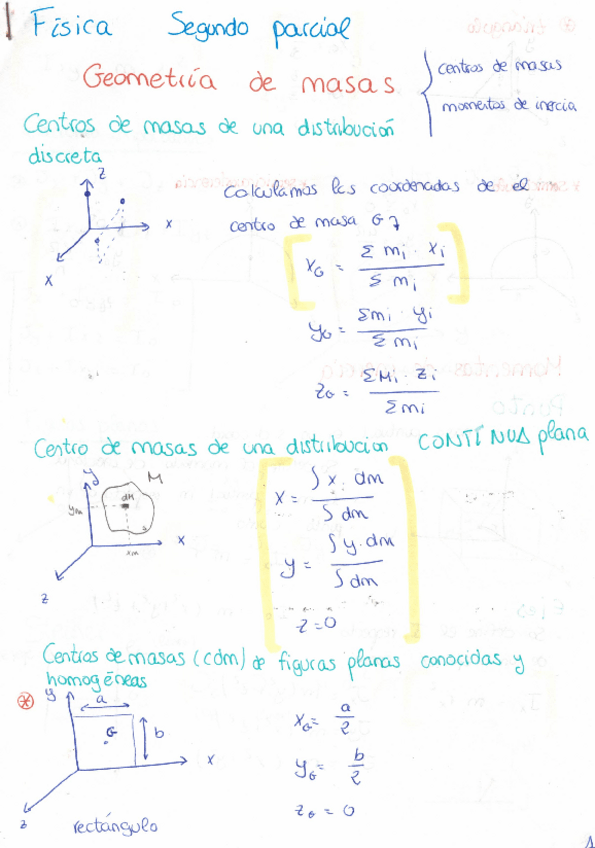 Física Segundo parcial
Geometría de masas
centros de masas
momentos de inercia
Centros de masas de una distribución
discreta
z
x
x
Calculamos las coordenadas de el
centro de masa G
x_G = Σ m_i · x_i / Σ m_i
y_G = Σ m_i · y_i / Σ m_i
z_G = Σ M_i · z_i / Σ m_i
Centro de masas de una distribucion CONTÍNUA plana
y
M
dM
y_m
x_m
x
z
x = ∫ x · dm / ∫ dm
y = ∫ y · dm / ∫ dm
z = 0
Centros de masas (cdm) de figuras planas conocidas y
homogéneas
y
a
G
b
x
z
rectángulo
x_G = a / 2
y_G = b / 2
z_G = 0
1